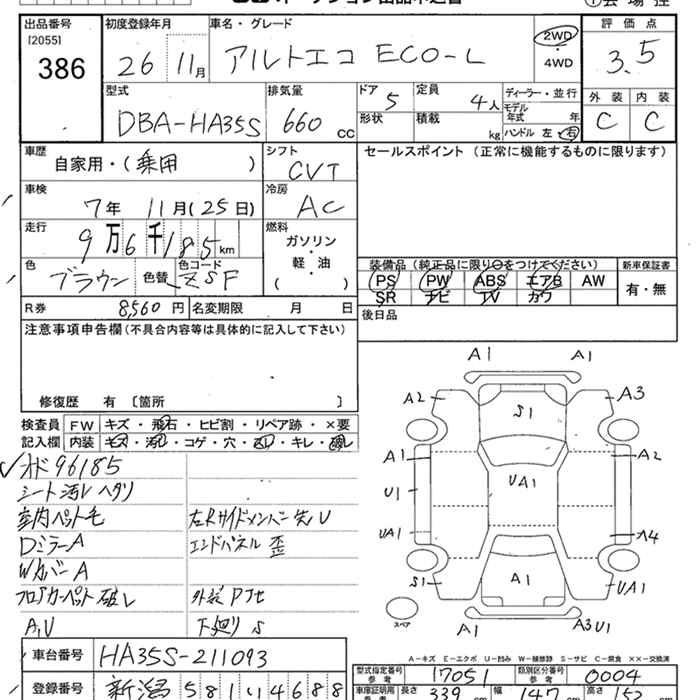 出品番号 初度登録年月 車名・グレード 評価点
[2055]
386 26 11月 アルトエコ ECO-L 2WD・4WD 3.5
型式 排気量 ドア 5 定員 4人 ディーラー・並行
モデル年式 年
外装 内装
DBA-HA35S 660cc 形状 積載 kg ハンドル 左・右 C C
車歴 シフト セールスポイント (正常に機能するものに限ります)
自家用・(乗用) CVT
車検 冷房
7年 11月(25日) AC
走行 燃料
9万6千185km ガソリン・軽・油
( )
色 ブラウン 色替 色コード ZSF
装備品 (純正品に限り○をつけてください) 新車保証書
PS PW ABS エアB AW 有・無
SR ナビ TV カワ
R券 8,560円 名変期限 月 日 後日品
注意事項申告欄 (不具合内容等は具体的に記入して下さい)
修復歴 有 [箇所 ]
検査員 FW キズ・飛石・ヒビ割・リペア跡・×要
記入欄 内装 キズ・汚レ・コゲ・穴・凹・キレ・破レ
メーター 96185
シート汚レ ヘタリ
室内ペット毛 左Rサイドメンバー先U
DミラーA エンドパネル 歪
WカバーA
フロアカーペット破レ 外装 P付
A,U 下廻りS
車台番号 HA35S-211093
登録番号 新潟 581 い 4688
A1 A1
A2 A3
S1
A1 A2
U1 UA1
UA1 A4
S1 A1 UA1
スペア
A3 U1
A-キズ E-エクボ U-凹み W-補修跡 S-サビ C-腐食 ××-交換済
型式指定番号 参考 17051 類別区分番号 参考 0004
車庫証明用 参考 長さ 339cm 幅 147cm 高さ 152cm